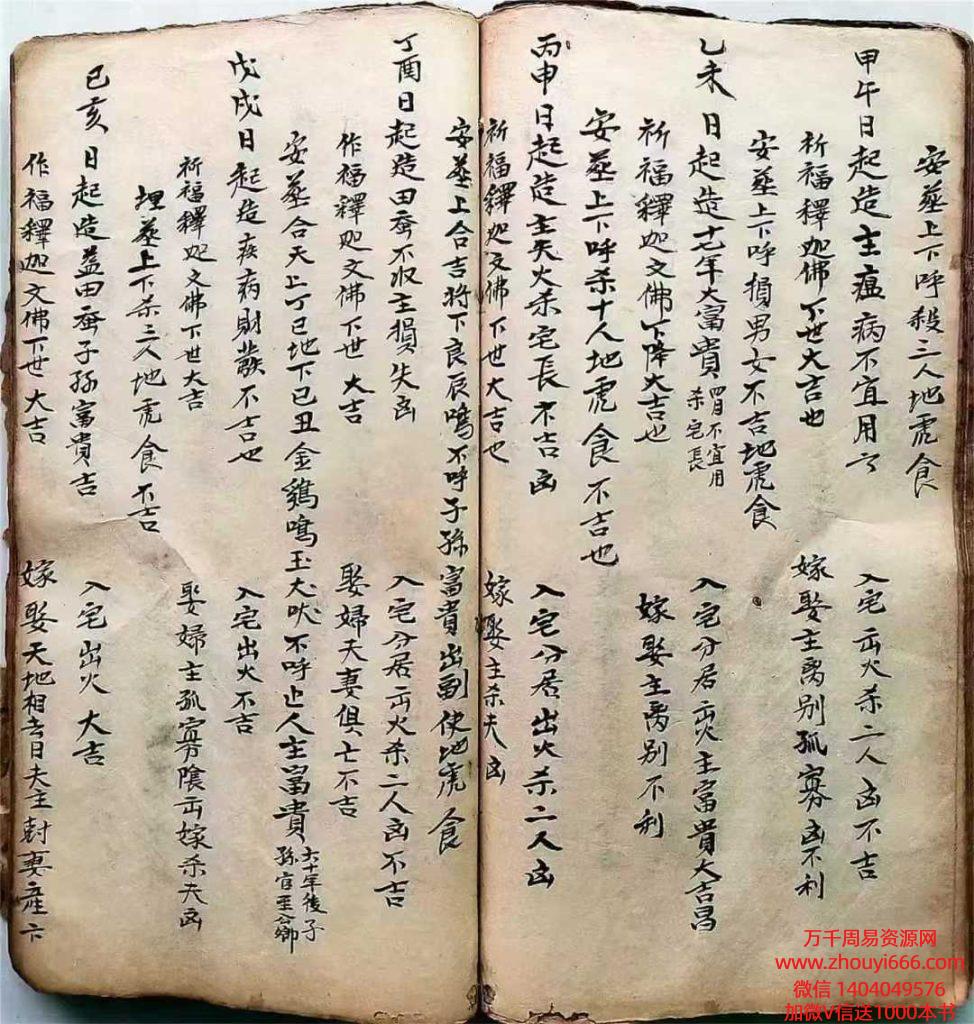 安葬上下呼殺三人地虎食
甲午日起造主瘟病不宜用之 入宅出火杀二人凶不吉
祈福釋迦佛下世大吉也 嫁娶主离别孤寡凶不利
安葬上下呼損男女不吉地虎食
乙未日起造十七年大富貴 四月不宜用杀宅長 入宅分居出火主富貴大吉昌
祈福釋迦文佛下降大吉也 嫁娶主离别不利
安葬上下呼杀十人地虎食不吉也
丙申日起造主失火杀宅長不吉凶 入宅分居出火杀二人凶
祈福釋迦文佛下世大吉也 嫁娶主杀夫凶
安葬上合吉将下良辰鳴不呼子孫富貴出副使地虎食
丁酉日起造田蚕不收主損失凶 入宅分居出火杀二人凶不吉
作福釋迦文佛下世大吉 娶婦夫妻俱亡不吉
安葬合天上丁巳地下己丑金鷄鳴玉犬吠不呼止人主富貴 六十年後子孫官至公卿
戊戌日起造疾病財散不吉也 入宅出火不吉
祈福釋迦文佛下世大吉 娶婦主孤寡陰出嫁杀夫凶
埋葬上下杀三人地虎食不吉
己亥日起造益田蚕子孫富貴吉 入宅出火大吉
作福釋迦文佛下世大吉 嫁娶天地相去日夫主尅妻產亡
万千周易资源网
www.zhouyi666.com
微信 1404049576
加微V信送1000本书